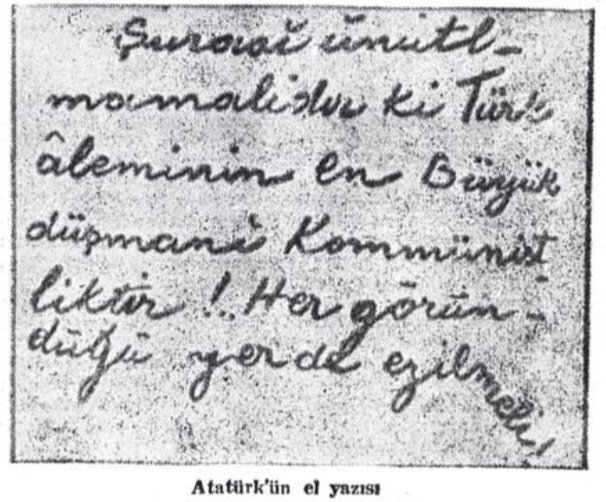 Şurasi ünutl-
mamalidır ki Türk
âleminin en Büyük
düşmani Kommünist
liktir !. Her görün-
düğü yerde ezilmeli!
Atatürk'ün el yazısı